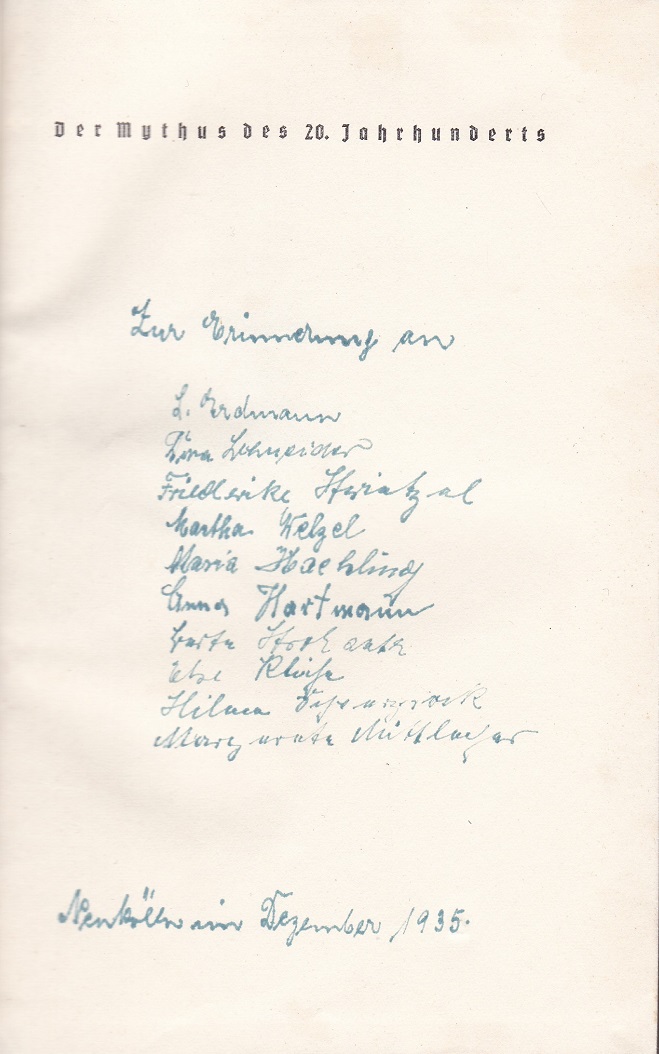 Der Mythus des 20. Jahrhunderts
Zur Erinnerung an
L. Erdmann
Schneider
Friederike
Martha Welzel
Maria Haehling
Anna Hartmann
Else
Hilma
Margarete Mittlacher
Neukölln im Dezember 1935.